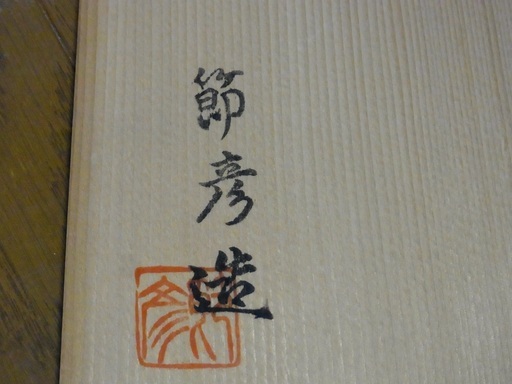 節彦造